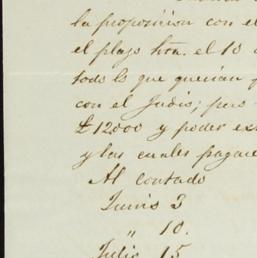 la proposicion con el
el plazo hta. el 10
todo lo que querian
con el Judio; pero
£12000 y poder
y las cuales
Al contado
Junio 3
" 10.
Julio 15